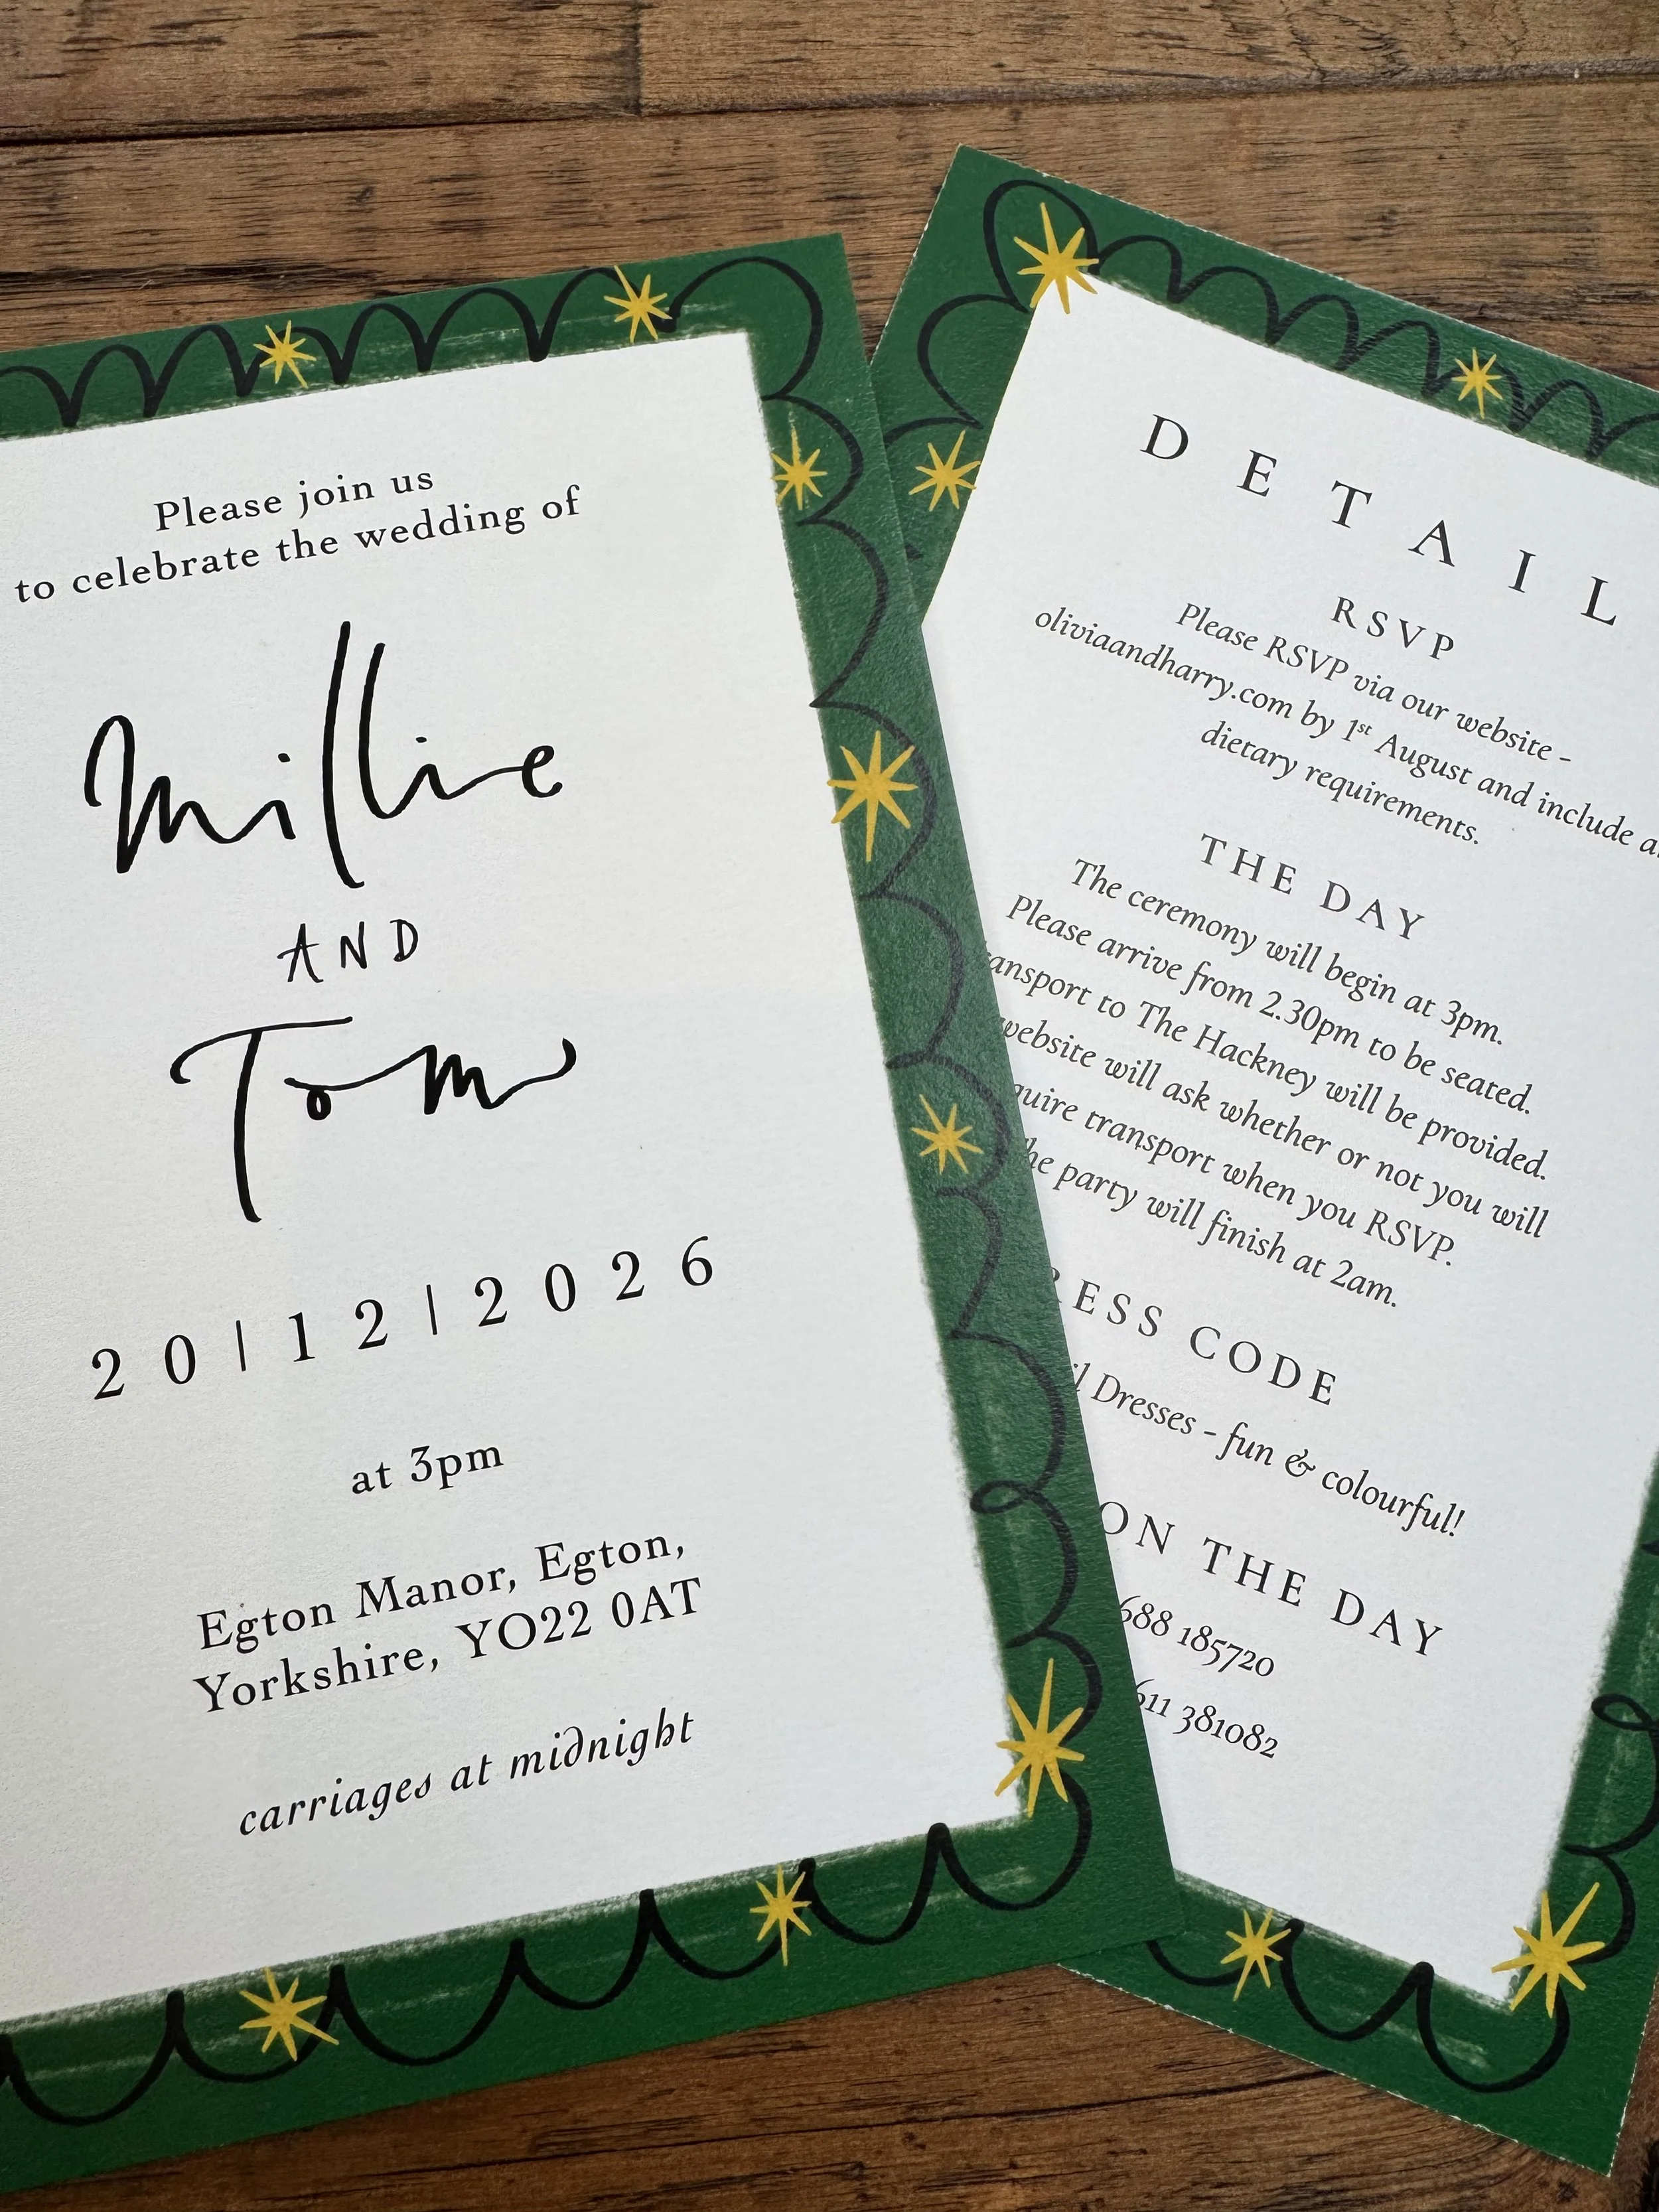 Please join us
to celebrate the wedding of
Millie
AND
Tom
20|12|2026
at 3pm
Egton Manor, Egton,
Yorkshire, YO22 0AT
carriages at midnight
DETAIL
RSVP
Please RSVP via our website -
oliviaandharry.com by 1st August and include
dietary requirements.
THE DAY
The ceremony will begin at 3pm.
Please arrive from 2.30pm to be seated.
ansport to The Hackney will be provided.
website will ask whether or not you will
quire transport when you RSVP.
he party will finish at 2am.
RESS CODE
il Dresses - fun & colourful!
ON THE DAY
688 185720
611 381082